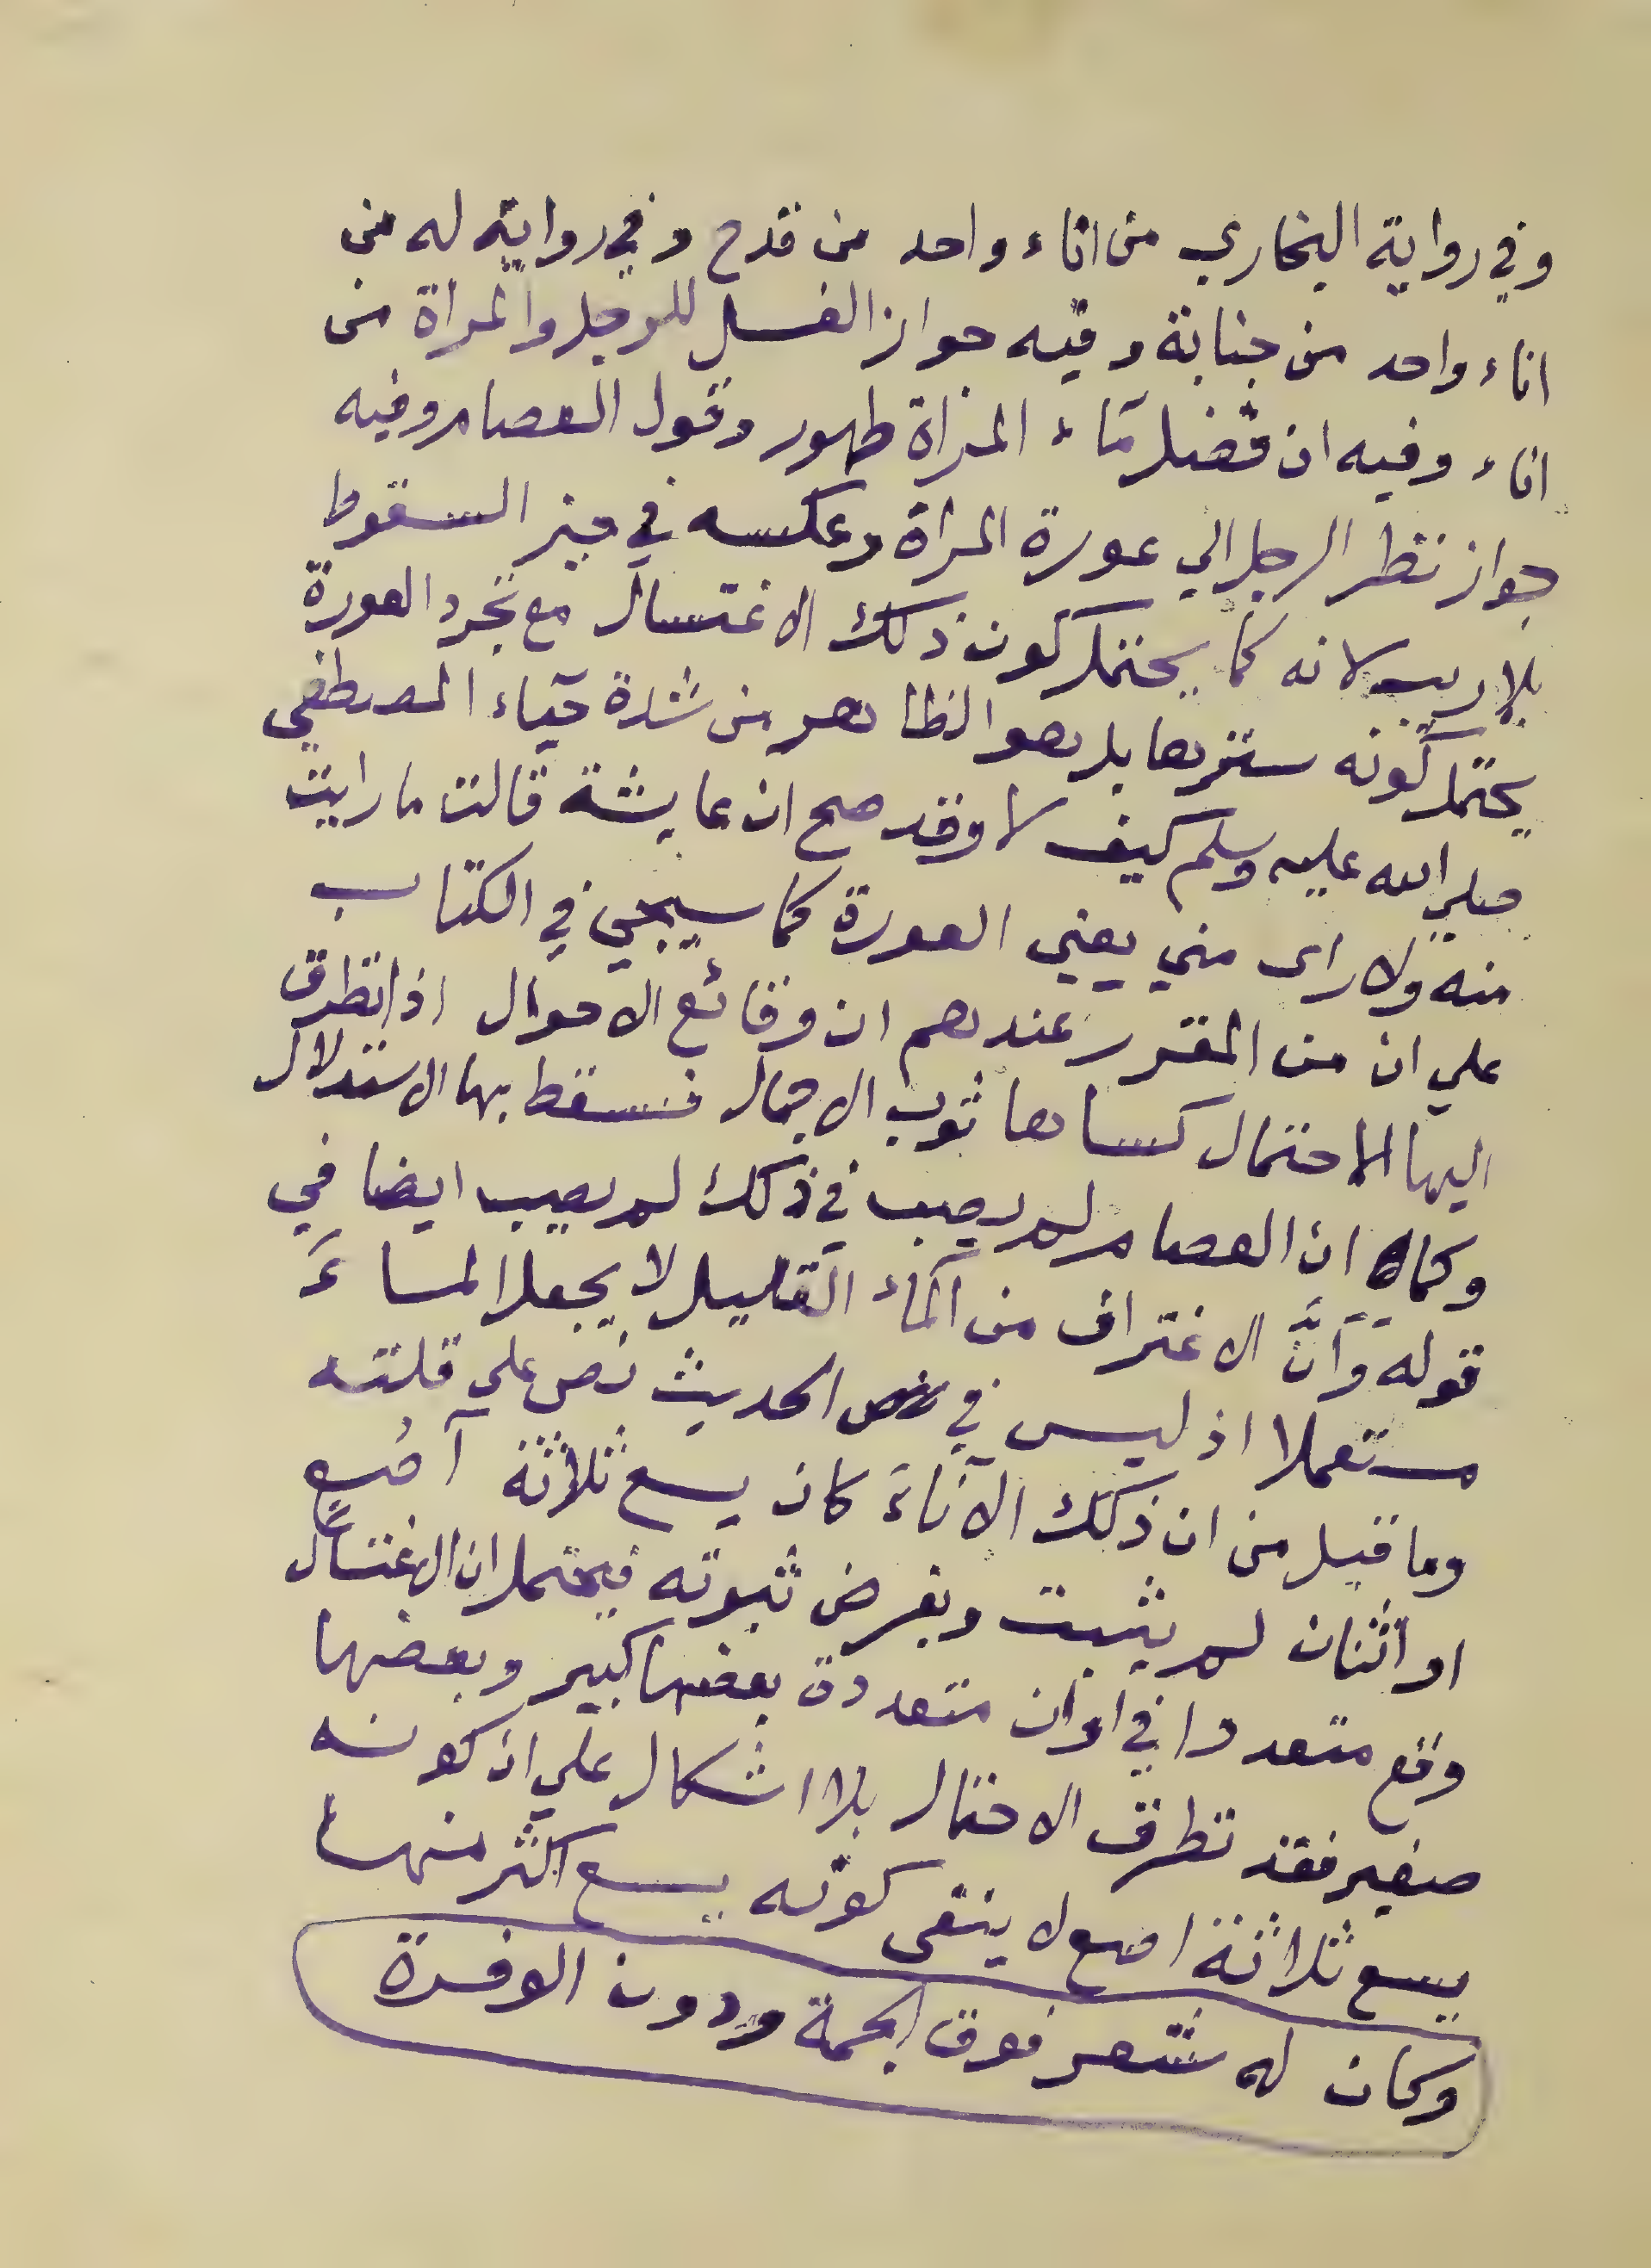 وفي رواية البخاري من اناء واحد من قدح وفي رواية له من
اناء واحد من جنابة وفيه جواز الغسل للرجل والمراة من
اناء وفيه ان فضل مآء المراة طهور وقول العصام وفيه
جواز نظر الرجل الي عورة المراة وعكسه في حيز السقوط
بلا ريب لانه كما يحتمل كون ذلك الاغتسال مع تجرد العورة
يحتمل كونه سترها بل هو الظاهر من شدة حيآء المصطفي
صلي الله عليه وسلم كيف لا وقد صح ان عايشة قالت ما رايت
منه ولا راى مني يعني العورة كما سيجي في الكتاب
علي ان من المقرر عندهم ان وقائع الاحوال اذا تطرق
اليها الاحتمال كساها ثوب الاجمال فسقط بها الاستدلال
وكما ان العصام لم يصب في ذلك لم يصب ايضا في
قوله وَاَنَّ الاغتراف من المآء القليل لا يجعل الماءَ
مستعملا اذ ليس في نص الحديث نص على قلته
وما قيل من ان ذلك الاناءَ كان يسع ثلاثة آصُعٍ
او اثنان لم يثبت وبفرض ثبوته فيحتمل ان الاغتسال
وقع متعددا في اوان متعددة بعضها كبير وبعضها
صغير فقد تطرق الاحتمال بلا اشكال علي ان كونه
يسع ثلاثة اصع لا ينفى كونه يسع اكثر منها
وكان له شعر فوق الجمة ودون الوفرة